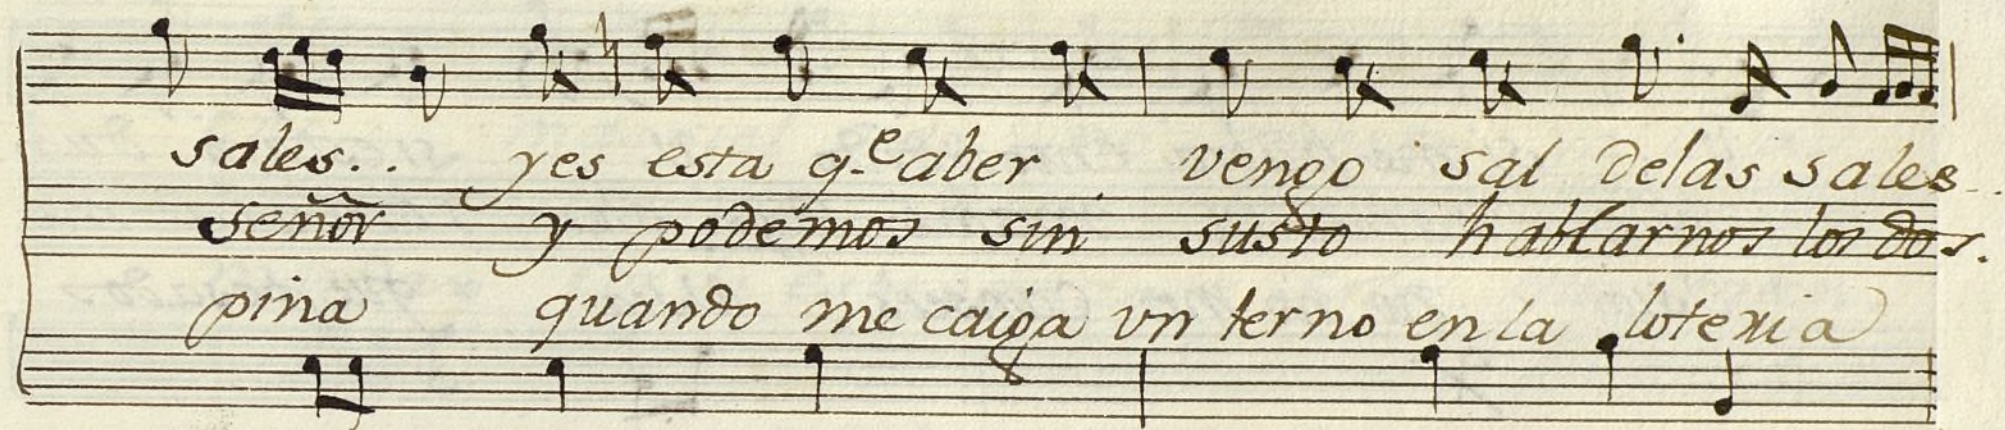 sales.. yes esta q.e aber vengo sal delas sales..
señor y podemos sin susto hablarnos los dos.
pina quando me caiga vn terno en la loteria